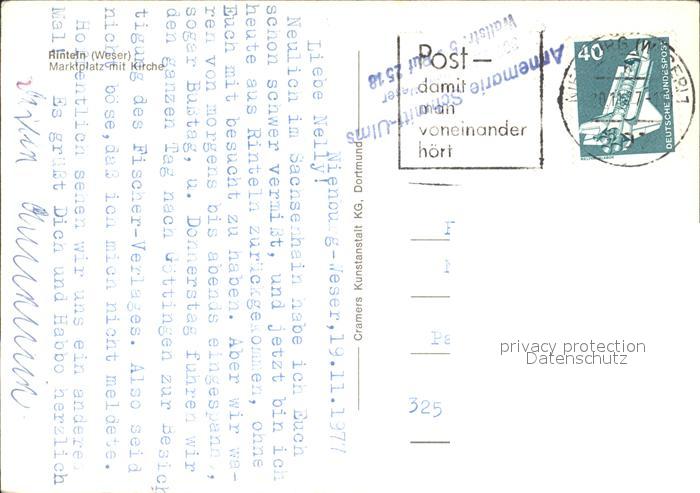 Rinteln (Weser)
Marktplatz mit Kirche
Nienburg-Weser, 19.11.1977
Liebe Nelly!
Neulich im Sachsenhain habe ich Euch
schon schwer vermißt, und jetzt bin ich
heute aus Rinteln zurückgekommen, ohne
Euch mit besucht zu haben. Aber wir wa-
ren von morgens bis abends eingespannt,
sogar Bußtag, u. Donnerstag fuhren wir
den ganzen Tag nach Göttingen zur Besich
tigung des Fischer-Verlages. Also seid
nicht böse, daß ich mich nicht meldete.
Hoffentlich sehen wir uns ein andere
Mal! Es grüßt Dich und Habbo herzlich
Cramers Kunstanstalt KG, Dortmund
Annemarie Schmitt-Ulms
Wallstr. 5 Ruf 2518
Post-
damit
man
voneinander
hört
40
DEUTSCHE BUNDESPOST
Pa
325
privacy protection
Datenschutz